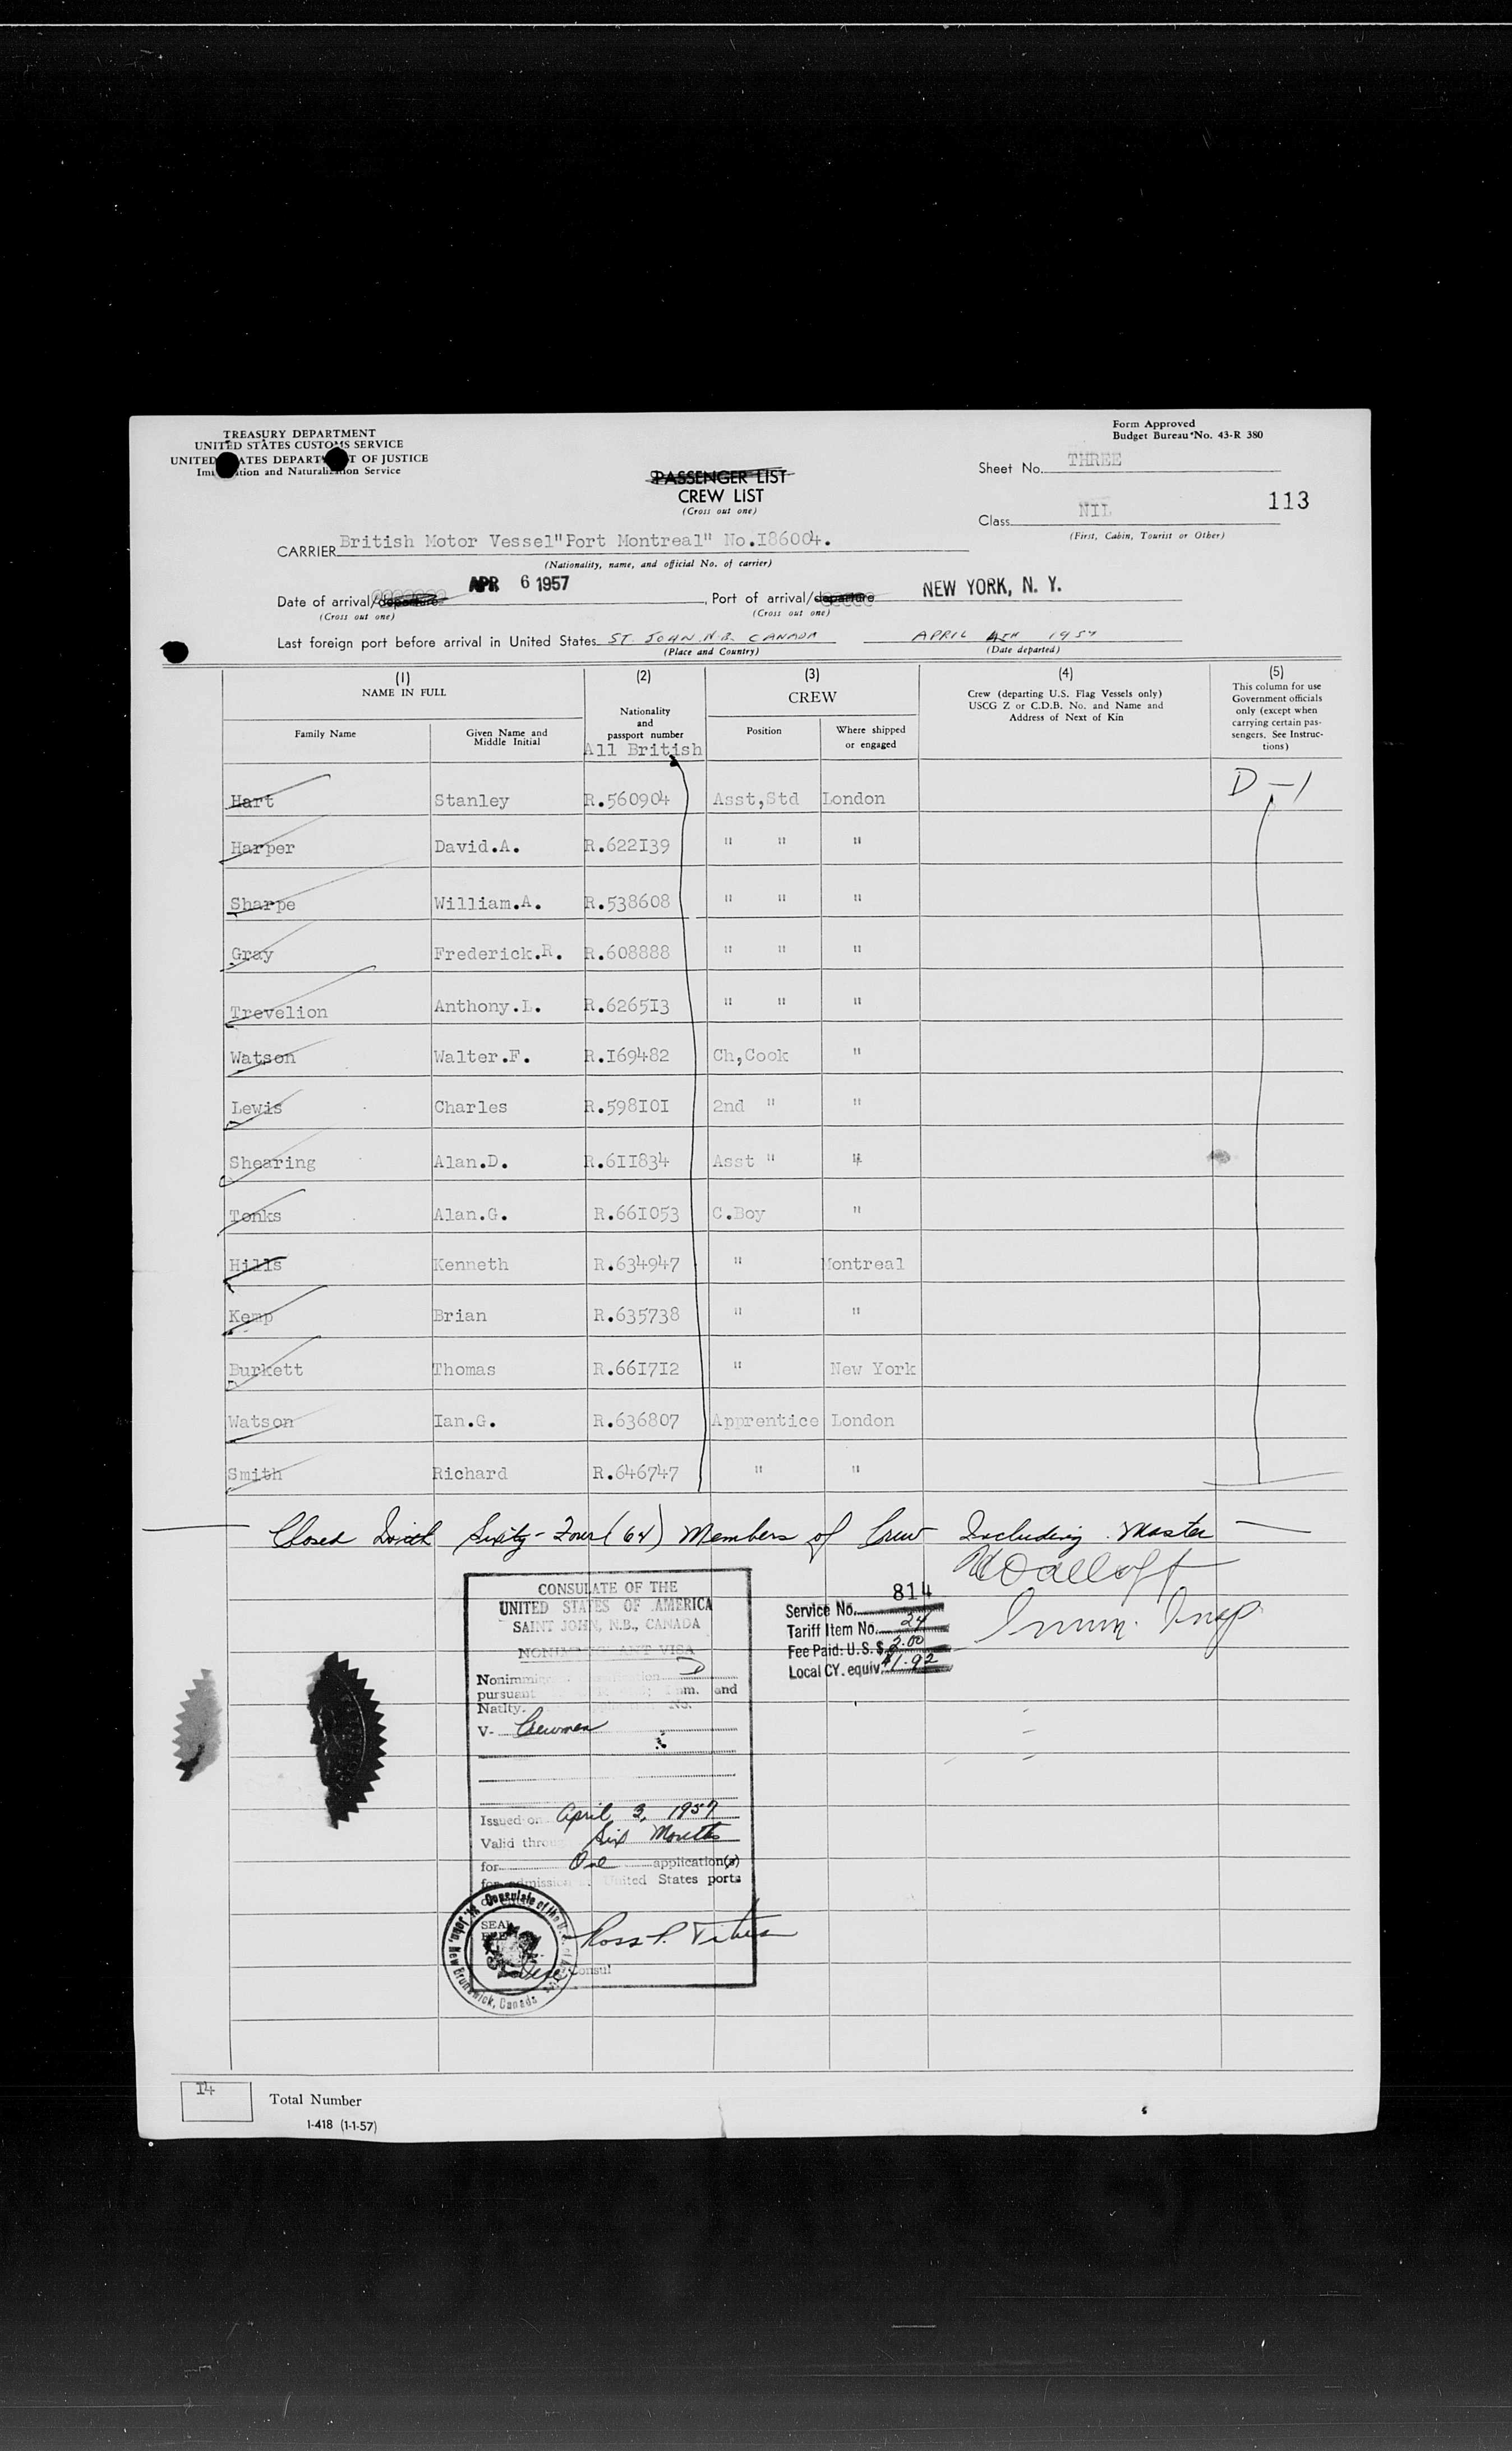 TREASURY DEPARTMENT
UNITED STATES CUSTOMS SERVICE
UNITED STATES DEPARTMENT OF JUSTICE
Immigration and Naturalization Service
Form Approved
Budget Bureau No. 43-R 380
PASSENGER LIST
CREW LIST
(Cross out one)
Sheet No. THREE
Class NIL
113
(First, Cabin, Tourist or Other)
CARRIER British Motor Vessel"Port Montreal" No.I86004.
(Nationality, name, and official No. of carrier)
Date of arrival/departure APR 6 1957, Port of arrival/departure NEW YORK, N. Y.
(Cross out one) (Cross out one)
Last foreign port before arrival in United States ST. JOHN. N.B. CANADA APRIL 4TH 1957
(Place and Country) (Date departed)
(1) NAME IN FULL
Family Name
Given Name and Middle Initial
(2) Nationality and passport number
All British
(3) CREW
Position
Where shipped or engaged
(4) Crew (departing U.S. Flag Vessels only) USCG Z or C.D.B. No. and Name and Address of Next of Kin
(5) This column for use Government officials only (except when carrying certain passengers. See Instructions)
Hart Stanley R.560904 Asst,Std London D-1
Harper David.A. R.622I39 " " "
Sharpe William.A. R.538608 " " "
Gray Frederick.R. R.608888 " " "
Trevelion Anthony.L. R.6265I3 " " "
Watson Walter.F. R.I69482 Ch,Cook "
Lewis Charles R.598I0I 2nd " "
Shearing Alan.D. R.6II834 Asst " "
Tonks Alan.G. R.66I053 C.Boy "
Hills Kenneth R.634947 " Montreal
Kemp Brian R.635738 " "
Burkett Thomas R.66I7I2 " New York
Watson Ian.G. R.636807 Apprentice London
Smith Richard R.646747 " "
Closed With Sixty-Four (64) Members of Crew Including Master
Imm. Insp
CONSULATE OF THE
UNITED STATES OF AMERICA
SAINT JOHN, N.B., CANADA
NONIMMIGRANT VISA
Nonimmigrant classification D
pursuant Imm. and
Natlty. No.
V- Crewmen
Issued on April 3, 1957
Valid through Six Months
for One application(s)
for admission at United States ports
SEAL
Vice Consul
Ross P.
Consulate of the U.S. of America
St. John, New Brunswick, Canada
814
Service No.
Tariff Item No. 24
Fee Paid: U.S. $ 2.00
Local CY. equiv. $1.92
I4
Total Number
I-418 (1-1-57)